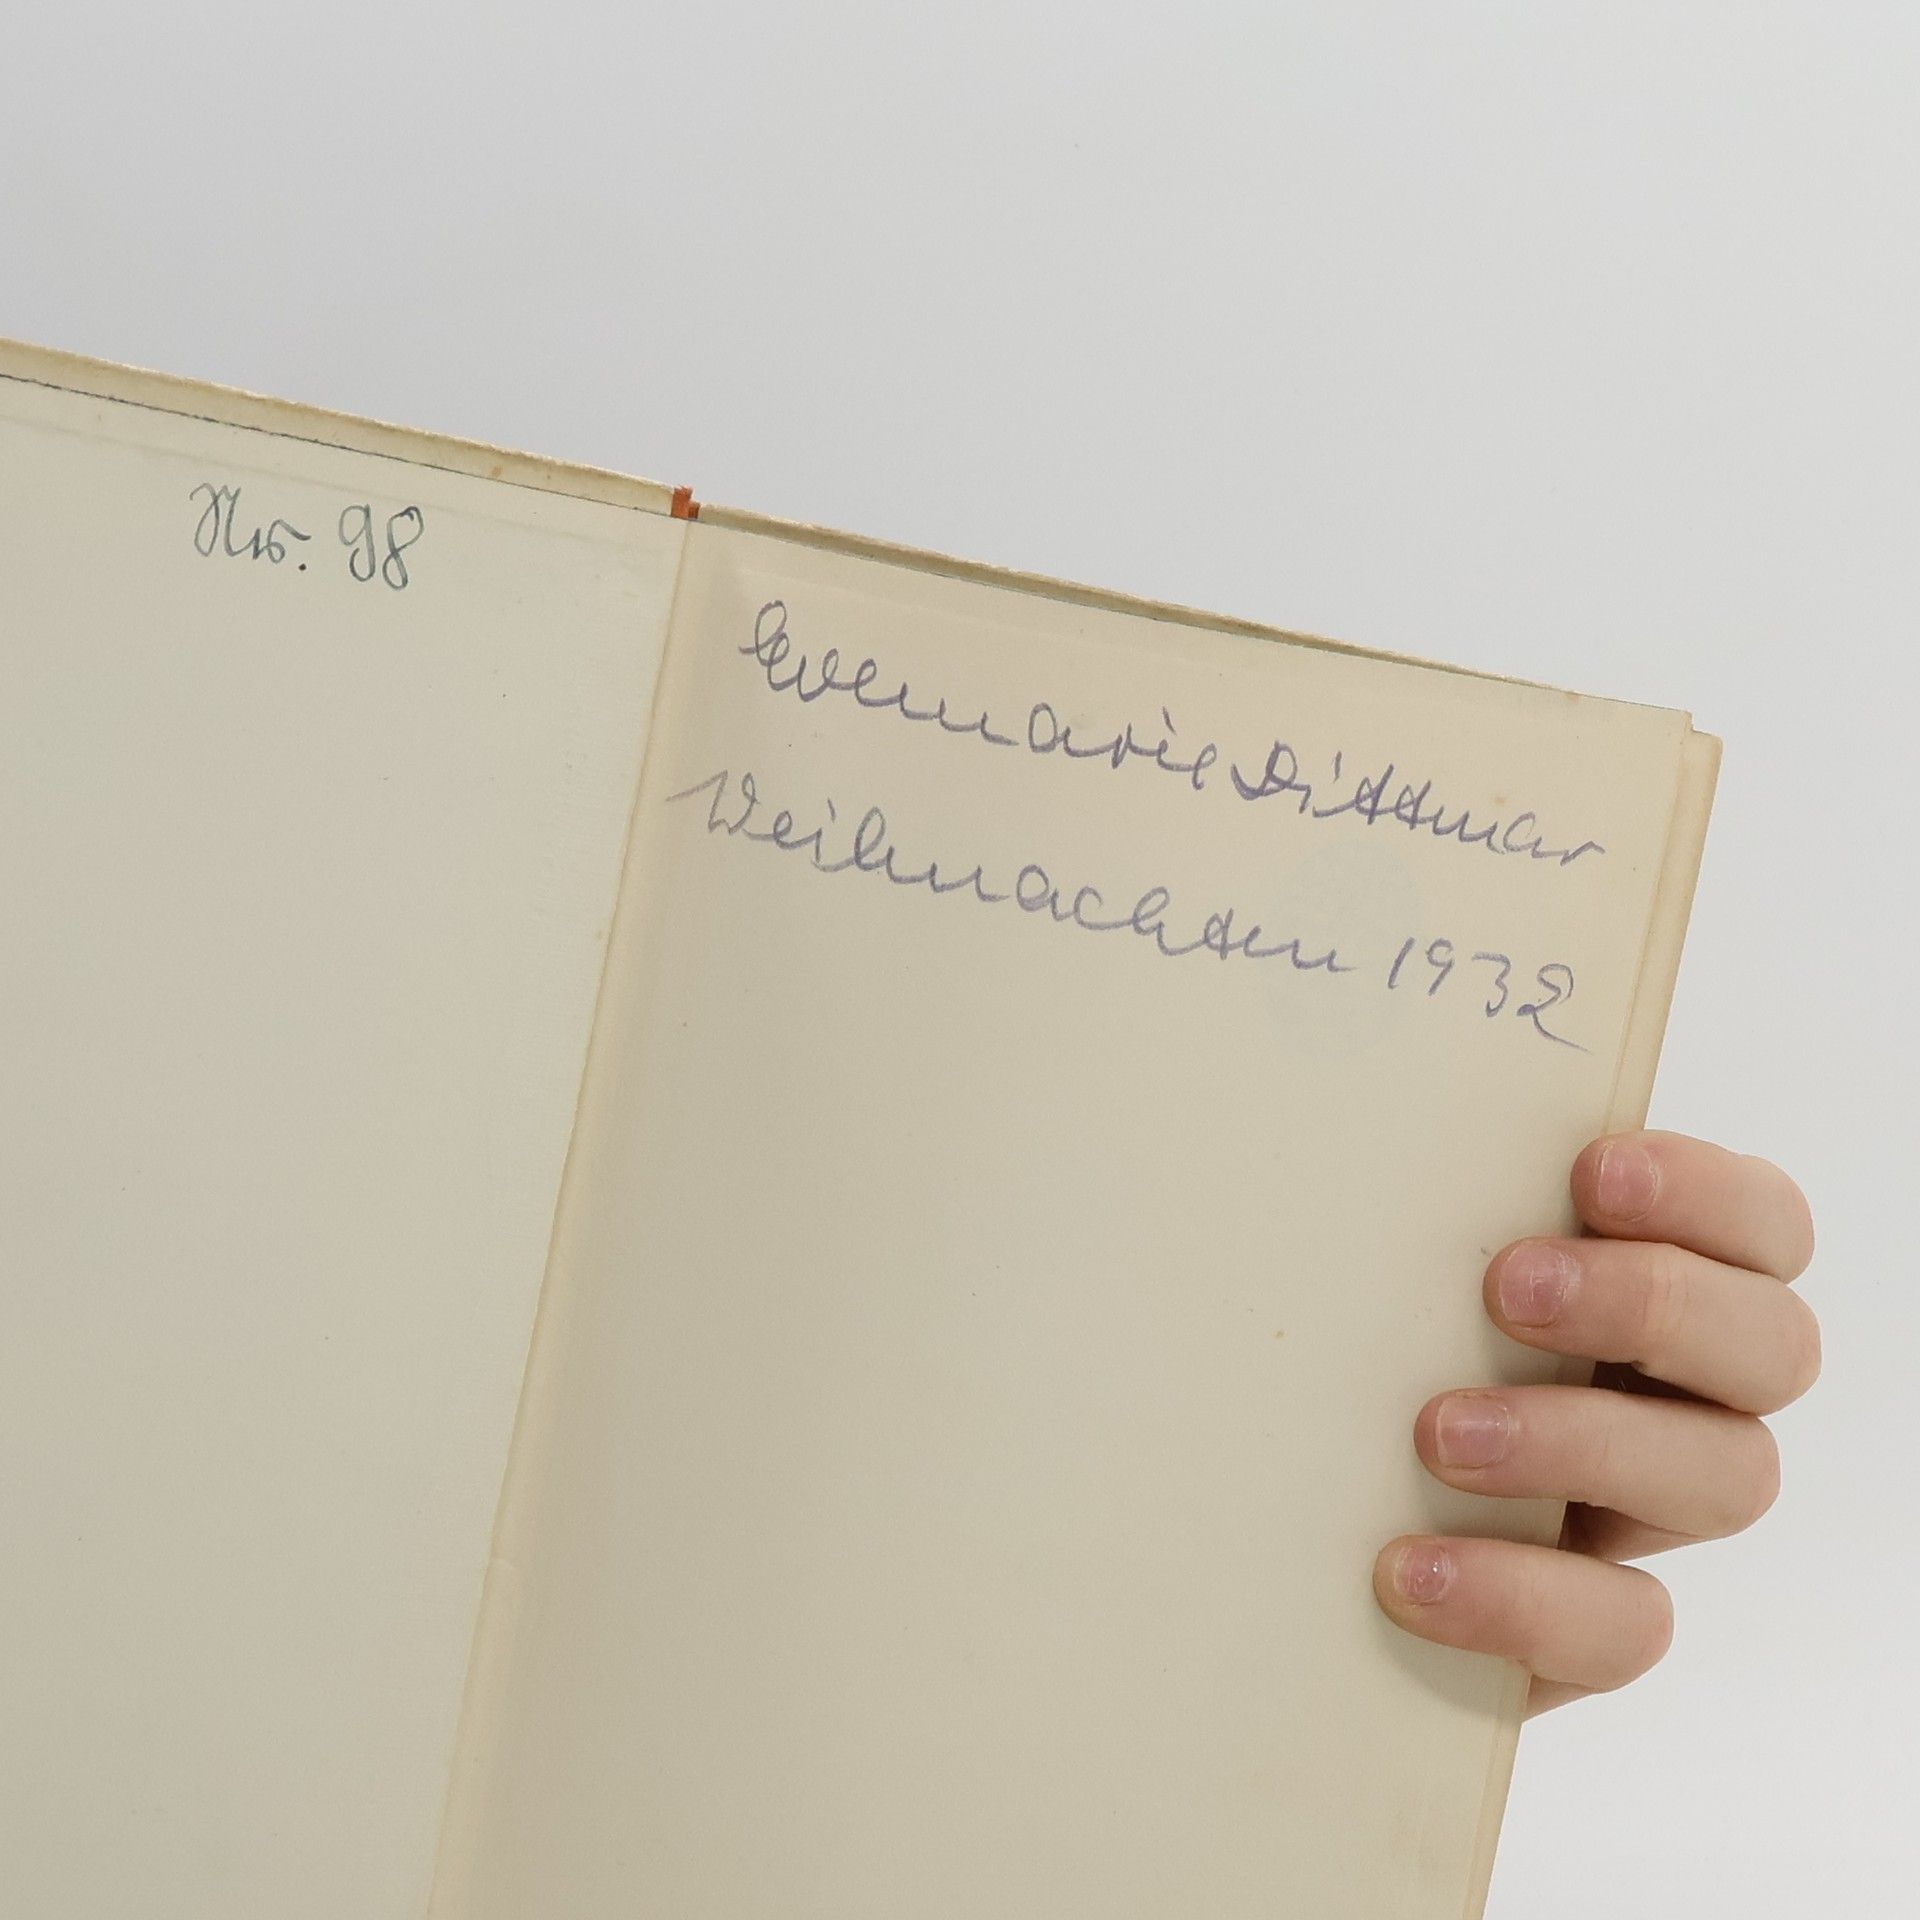 Nr. 98
Evemarie Dittmar
Weihnachten 1932